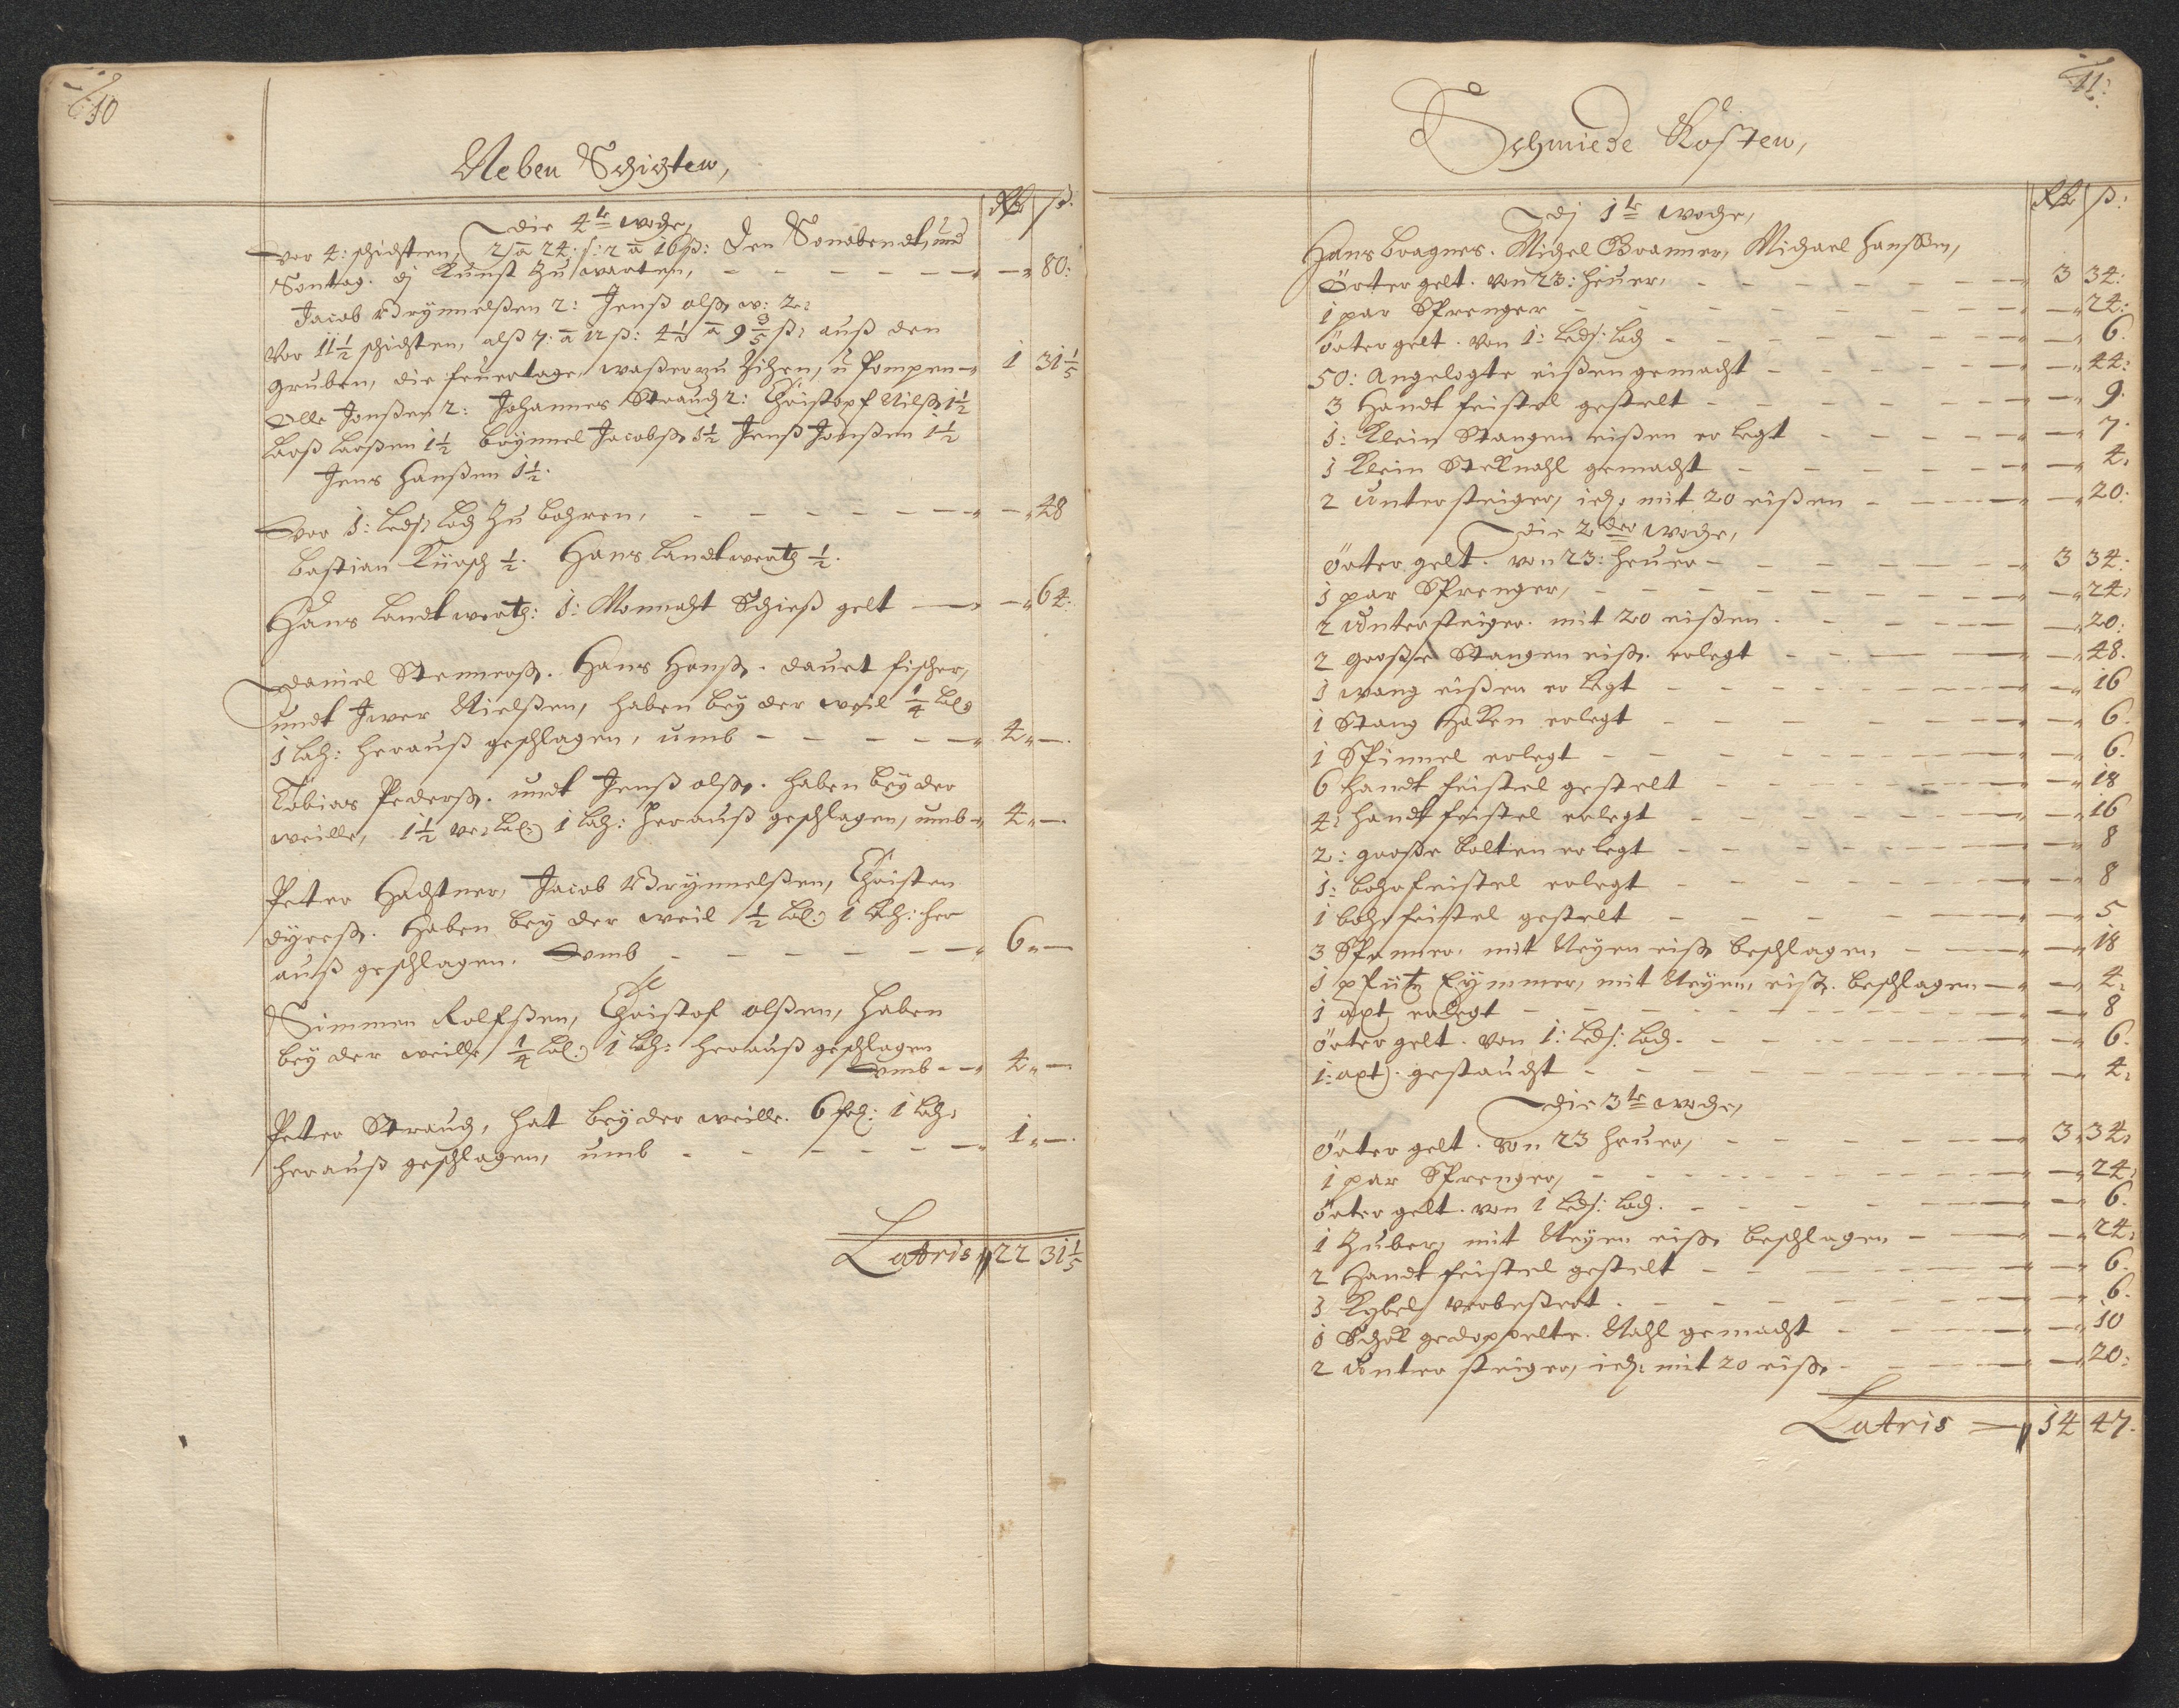 10
Neben Schichten,
Rdr ß.
Die 4te woche,
Vor 4: schichten, 2 â 24. ß: 2 â 16 ß: Den Sonabendt und
Sontag. dj Kunst zu warten, — — 80:
Jacob Brynnelßen 2: Jenß olß. 2:
Vor 11½ schichten, alß 7: â 12 ß: 4½ â 9 3/5 ß: auß den
gruben, die feuertage, waßer zu zihen, ü Pompen — 1 31 1/5
Olle Jonßen 2: Johannes Strauch 2: Christopf Nilß. 1½
Larß Larßen 1½ Brynnel Jacobß. 1½ Jenß Jonßen 1½
Jens Hanßen 1½.
Vor 1: Leds: Loch zu bohren, — — 48
Bastian Kürsch ½. Hans Landtwerth ½.
Hans Landtwerth: 1: Monnaht Schieß gelt — — 64:
Daniel Stennerß. Hans Hanß. Dauet fischer,
undt Iwer Nielßen, haben bey der weil ¼
1 Lach: herauß geschlagen, umb — 4 —
Tobias Pederß. undt Jenß olß. haben bey der
weille, 1½ 1 Lach: herauß geschlagen, umb — 4 —
Peter Hachtner, Jacob Brynnelßen, Christen
dyreß. Haben bey der weil ½ 1 Lach: her
auß geschlagen. Vmb — 6 —
Simmen Rolfßen, Christof olßen, haben
bey der weille ¼ 1 Lach: herauß geschlagen
Vmb — 4 —
Peter Strauch, hat bey der weille. 6 1 Lach:
herauß geschlagen, umb — 1 —
Latris 22 31 1/5
11:
Schmiede Kosten,
Rdr ß:
Dj 1te woche,
Hans Bragnes. Michel Bramer, Michael Hanßen,
Örter gelt. von 23: heuer, — 3 34:
1 par Sprenger — — 24:
örter gelt. von 1: Leds: Loch — — 6.
50: Angelegte eißen gemacht — — 44:
3 Handt feistel gestelt — — 9.
1: Klein Stangen eißen er legt — — 7.
1 Klein Steknahl gemacht — — 4:
2 Untersteiger, ied: mit 20 eißen — — 20:
Die 2der woche,
örter gelt. von 23: heuer — 3 34:
1 par Sprenger, — — 24:
2 Untersteiger. mit 20 eißen. — — 20:
2 große Stangen eiß. erlegt — — 48.
1 wang eißen er legt — — 16
1 Stang Haken erlegt — — 6.
1 Spinnel erlegt — — 6.
6 Handt feistel gestelt — — 18
4: handt feistel erlegt — — 16
2: große bolten er legt — — 8
1: bohrfeistel erlegt — — 8
1 bohr feistel gestelt — — 5
3 mit Neyen eiß. beschlagen — — 18
1 pfütz Eymmer, mit Neyen, eiß. beschlagen — — 4:
1 axt erlegt — — 8
örter gelt. von 1: Leds: Loch. — — 6.
1: axt. gestaucht — — 4:
Die 3te woche,
Örter gelt. von 23 heuer, — 3 34:
1 par Sprenger, — — 24:
örter gelt. von 1 Leds: Loch. — — 6.
1 Zuber, mit Neyen eiß. beschlagen — — 24:
2 Handt feistel gestelt — — 6.
1 Kybel verbeßert. — — 6.
1 Schok gedoppelte. Nahl gemacht — — 10
2 Unter steiger, ied: mit 20 eiß. — — 20:
Latris — 14 47.